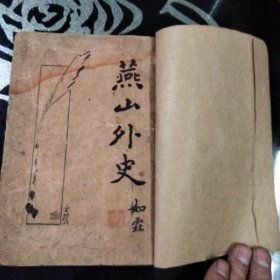 燕山外史
如霖